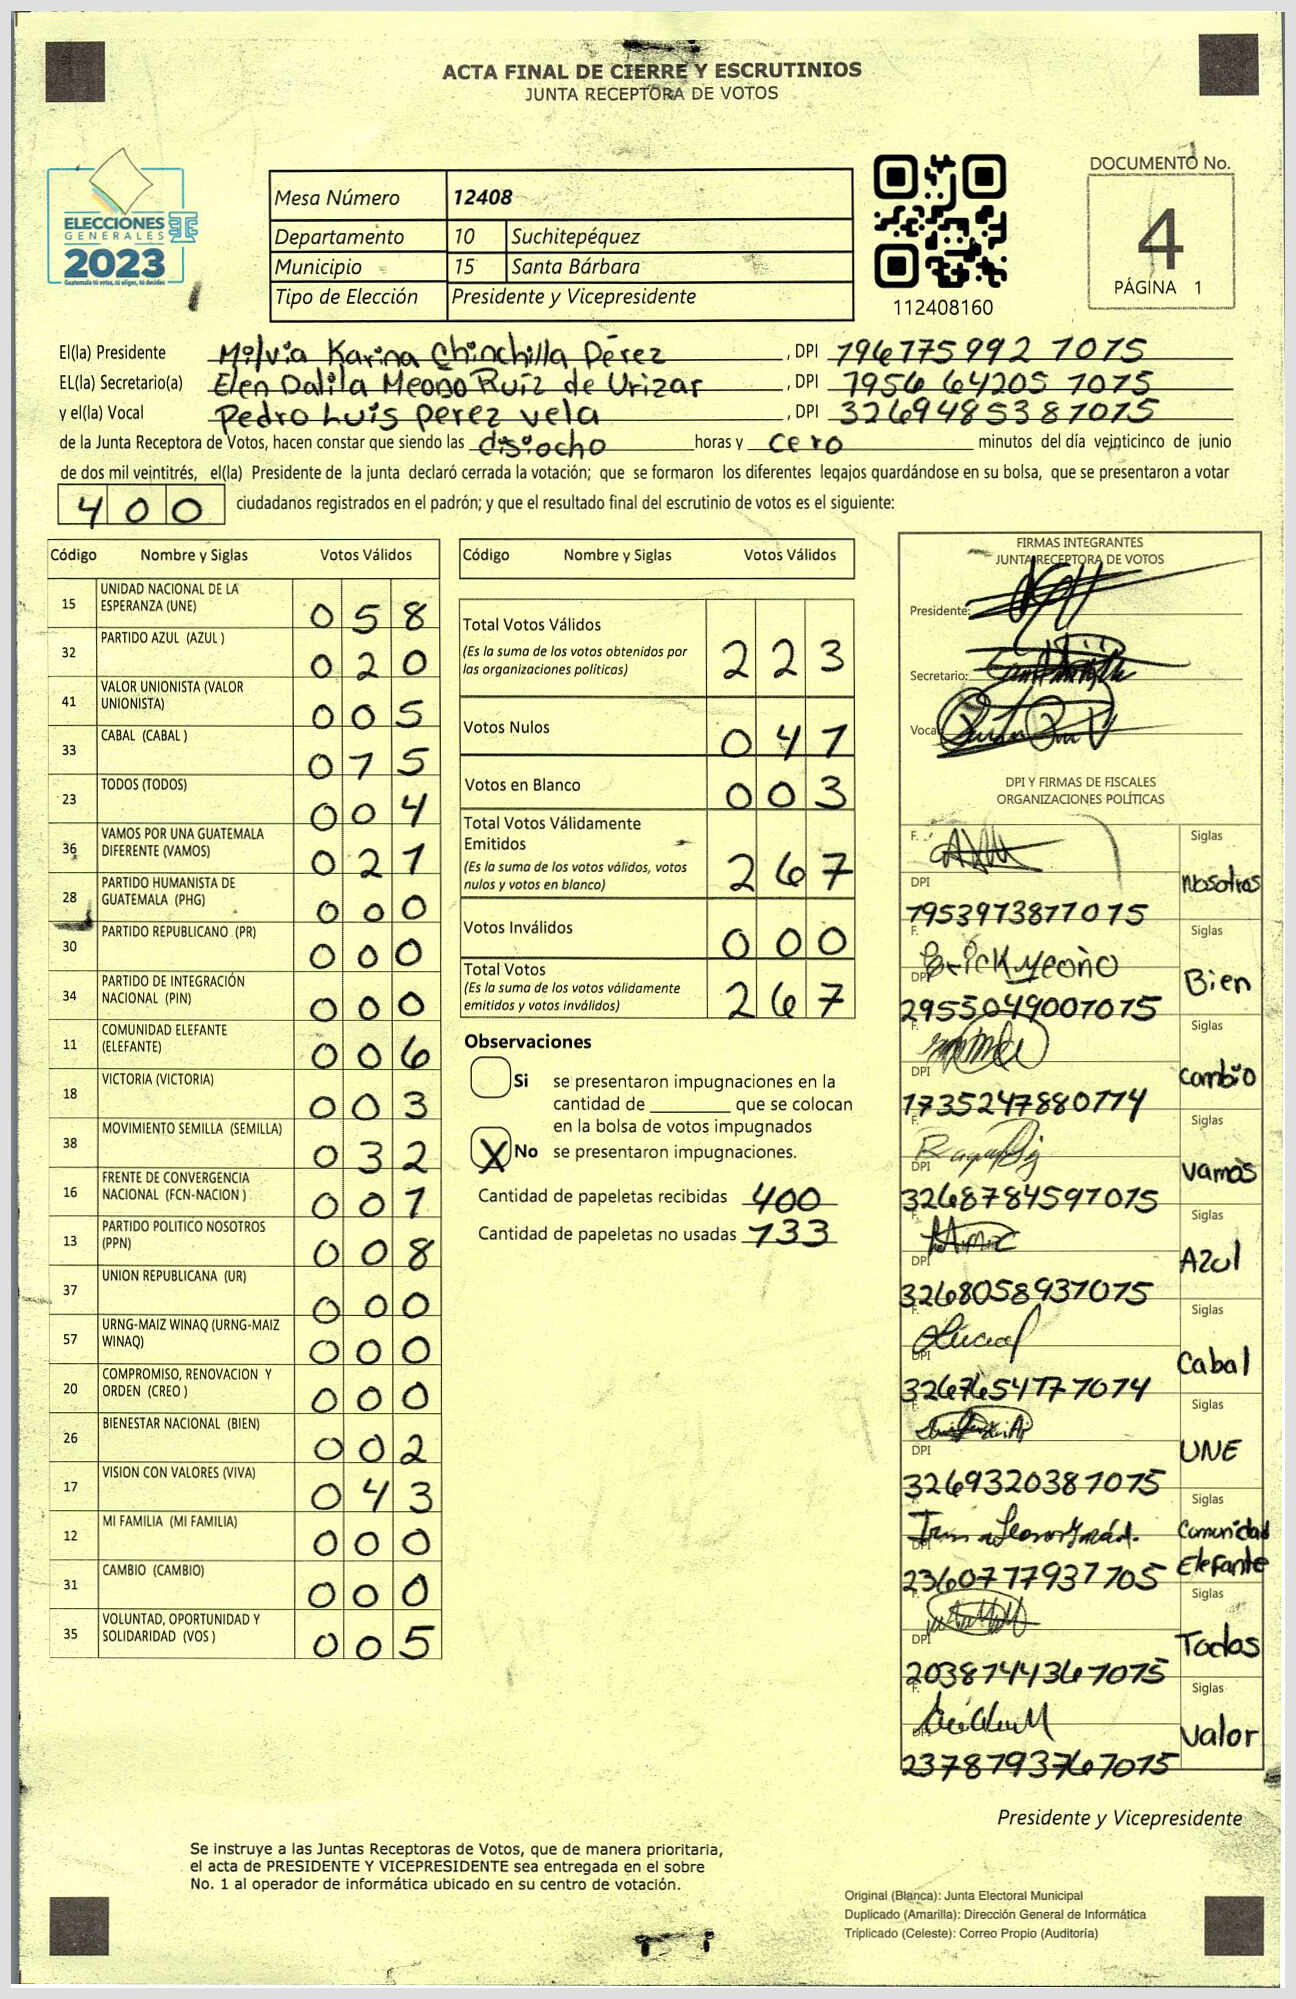 ACTA FINAL DE CIERRE Y ESCRUTINIOS
JUNTA RECEPTORA DE VOTOS
ELECCIONES
GENERALES
2023
Guatemala tú votas, tú eliges, tú decides
Mesa Número 12408
Departamento 10 Suchitepéquez
Municipio 15 Santa Bárbara
Tipo de Elección Presidente y Vicepresidente
112408160
DOCUMENTO No.
4
PÁGINA 1
El(la) Presidente Milvia Karina Chinchilla Pérez, DPI 796775992 7075
EL(la) Secretario(a) Elen Dalila Meono Ruíz de Urizar, DPI 7956 64205 7075
y el(la) Vocal Pedro Luis perez vela, DPI 3269485387075
de la Junta Receptora de Votos, hacen constar que siendo las disiocho horas y cero minutos del día veinticinco de junio
de dos mil veintitrés, el(la) Presidente de la junta declaró cerrada la votación; que se formaron los diferentes legajos quardándose en su bolsa, que se presentaron a votar
400 ciudadanos registrados en el padrón; y que el resultado final del escrutinio de votos es el siguiente:
Código Nombre y Siglas Votos Válidos
15 UNIDAD NACIONAL DE LA ESPERANZA (UNE) 058
32 PARTIDO AZUL (AZUL ) 020
41 VALOR UNIONISTA (VALOR UNIONISTA) 005
33 CABAL (CABAL ) 075
23 TODOS (TODOS) 004
36 VAMOS POR UNA GUATEMALA DIFERENTE (VAMOS) 021
28 PARTIDO HUMANISTA DE GUATEMALA (PHG) 000
30 PARTIDO REPUBLICANO (PR) 000
34 PARTIDO DE INTEGRACIÓN NACIONAL (PIN) 000
11 COMUNIDAD ELEFANTE (ELEFANTE) 006
18 VICTORIA (VICTORIA) 003
38 MOVIMIENTO SEMILLA (SEMILLA) 032
16 FRENTE DE CONVERGENCIA NACIONAL (FCN-NACION ) 001
13 PARTIDO POLITICO NOSOTROS (PPN) 008
37 UNION REPUBLICANA (UR) 000
57 URNG-MAIZ WINAQ (URNG-MAIZ WINAQ) 000
20 COMPROMISO, RENOVACION Y ORDEN (CREO ) 000
26 BIENESTAR NACIONAL (BIEN) 002
17 VISION CON VALORES (VIVA) 043
12 MI FAMILIA (MI FAMILIA) 000
31 CAMBIO (CAMBIO) 000
35 VOLUNTAD, OPORTUNIDAD Y SOLIDARIDAD (VOS ) 005
Código Nombre y Siglas Votos Válidos
Total Votos Válidos 223
(Es la suma de los votos obtenidos por
las organizaciones políticas)
Votos Nulos 041
Votos en Blanco 003
Total Votos Válidamente
Emitidos 267
(Es la suma de los votos válidos, votos
nulos y votos en blanco)
Votos Inválidos 000
Total Votos 267
(Es la suma de los votos válidamente
emitidos y votos inválidos)
Observaciones
Si se presentaron impugnaciones en la
cantidad de ________ que se colocan
en la bolsa de votos impugnados
X No se presentaron impugnaciones.
Cantidad de papeletas recibidas 400
Cantidad de papeletas no usadas 133
FIRMAS INTEGRANTES
JUNTA RECEPTORA DE VOTOS
Presidente:
Secretario:
Vocal
DPI Y FIRMAS DE FISCALES
ORGANIZACIONES POLÍTICAS
F. Siglas
DPI Nosotros
7953973877075
F. Erick Meoño Siglas
DPI Bien
2955049007075
F. Siglas
DPI Cambio
1735247880774
F. Siglas
DPI Vamos
3268784597075
F. Siglas
DPI Azul
3268058937075
F. Siglas
DPI Cabal
3267654777074
F. Siglas
DPI UNE
3269320387075
F. Siglas
DPI Comunidad
Elefante
2360777937705
F. Siglas
DPI Todos
2038744367075
F. Siglas
DPI Valor
2378793767075
Presidente y Vicepresidente
Se instruye a las Juntas Receptoras de Votos, que de manera prioritaria,
el acta de PRESIDENTE Y VICEPRESIDENTE sea entregada en el sobre
No. 1 al operador de informática ubicado en su centro de votación.
Original (Blanca): Junta Electoral Municipal
Duplicado (Amarilla): Dirección General de Informática
Triplicado (Celeste): Correo Propio (Auditoría)